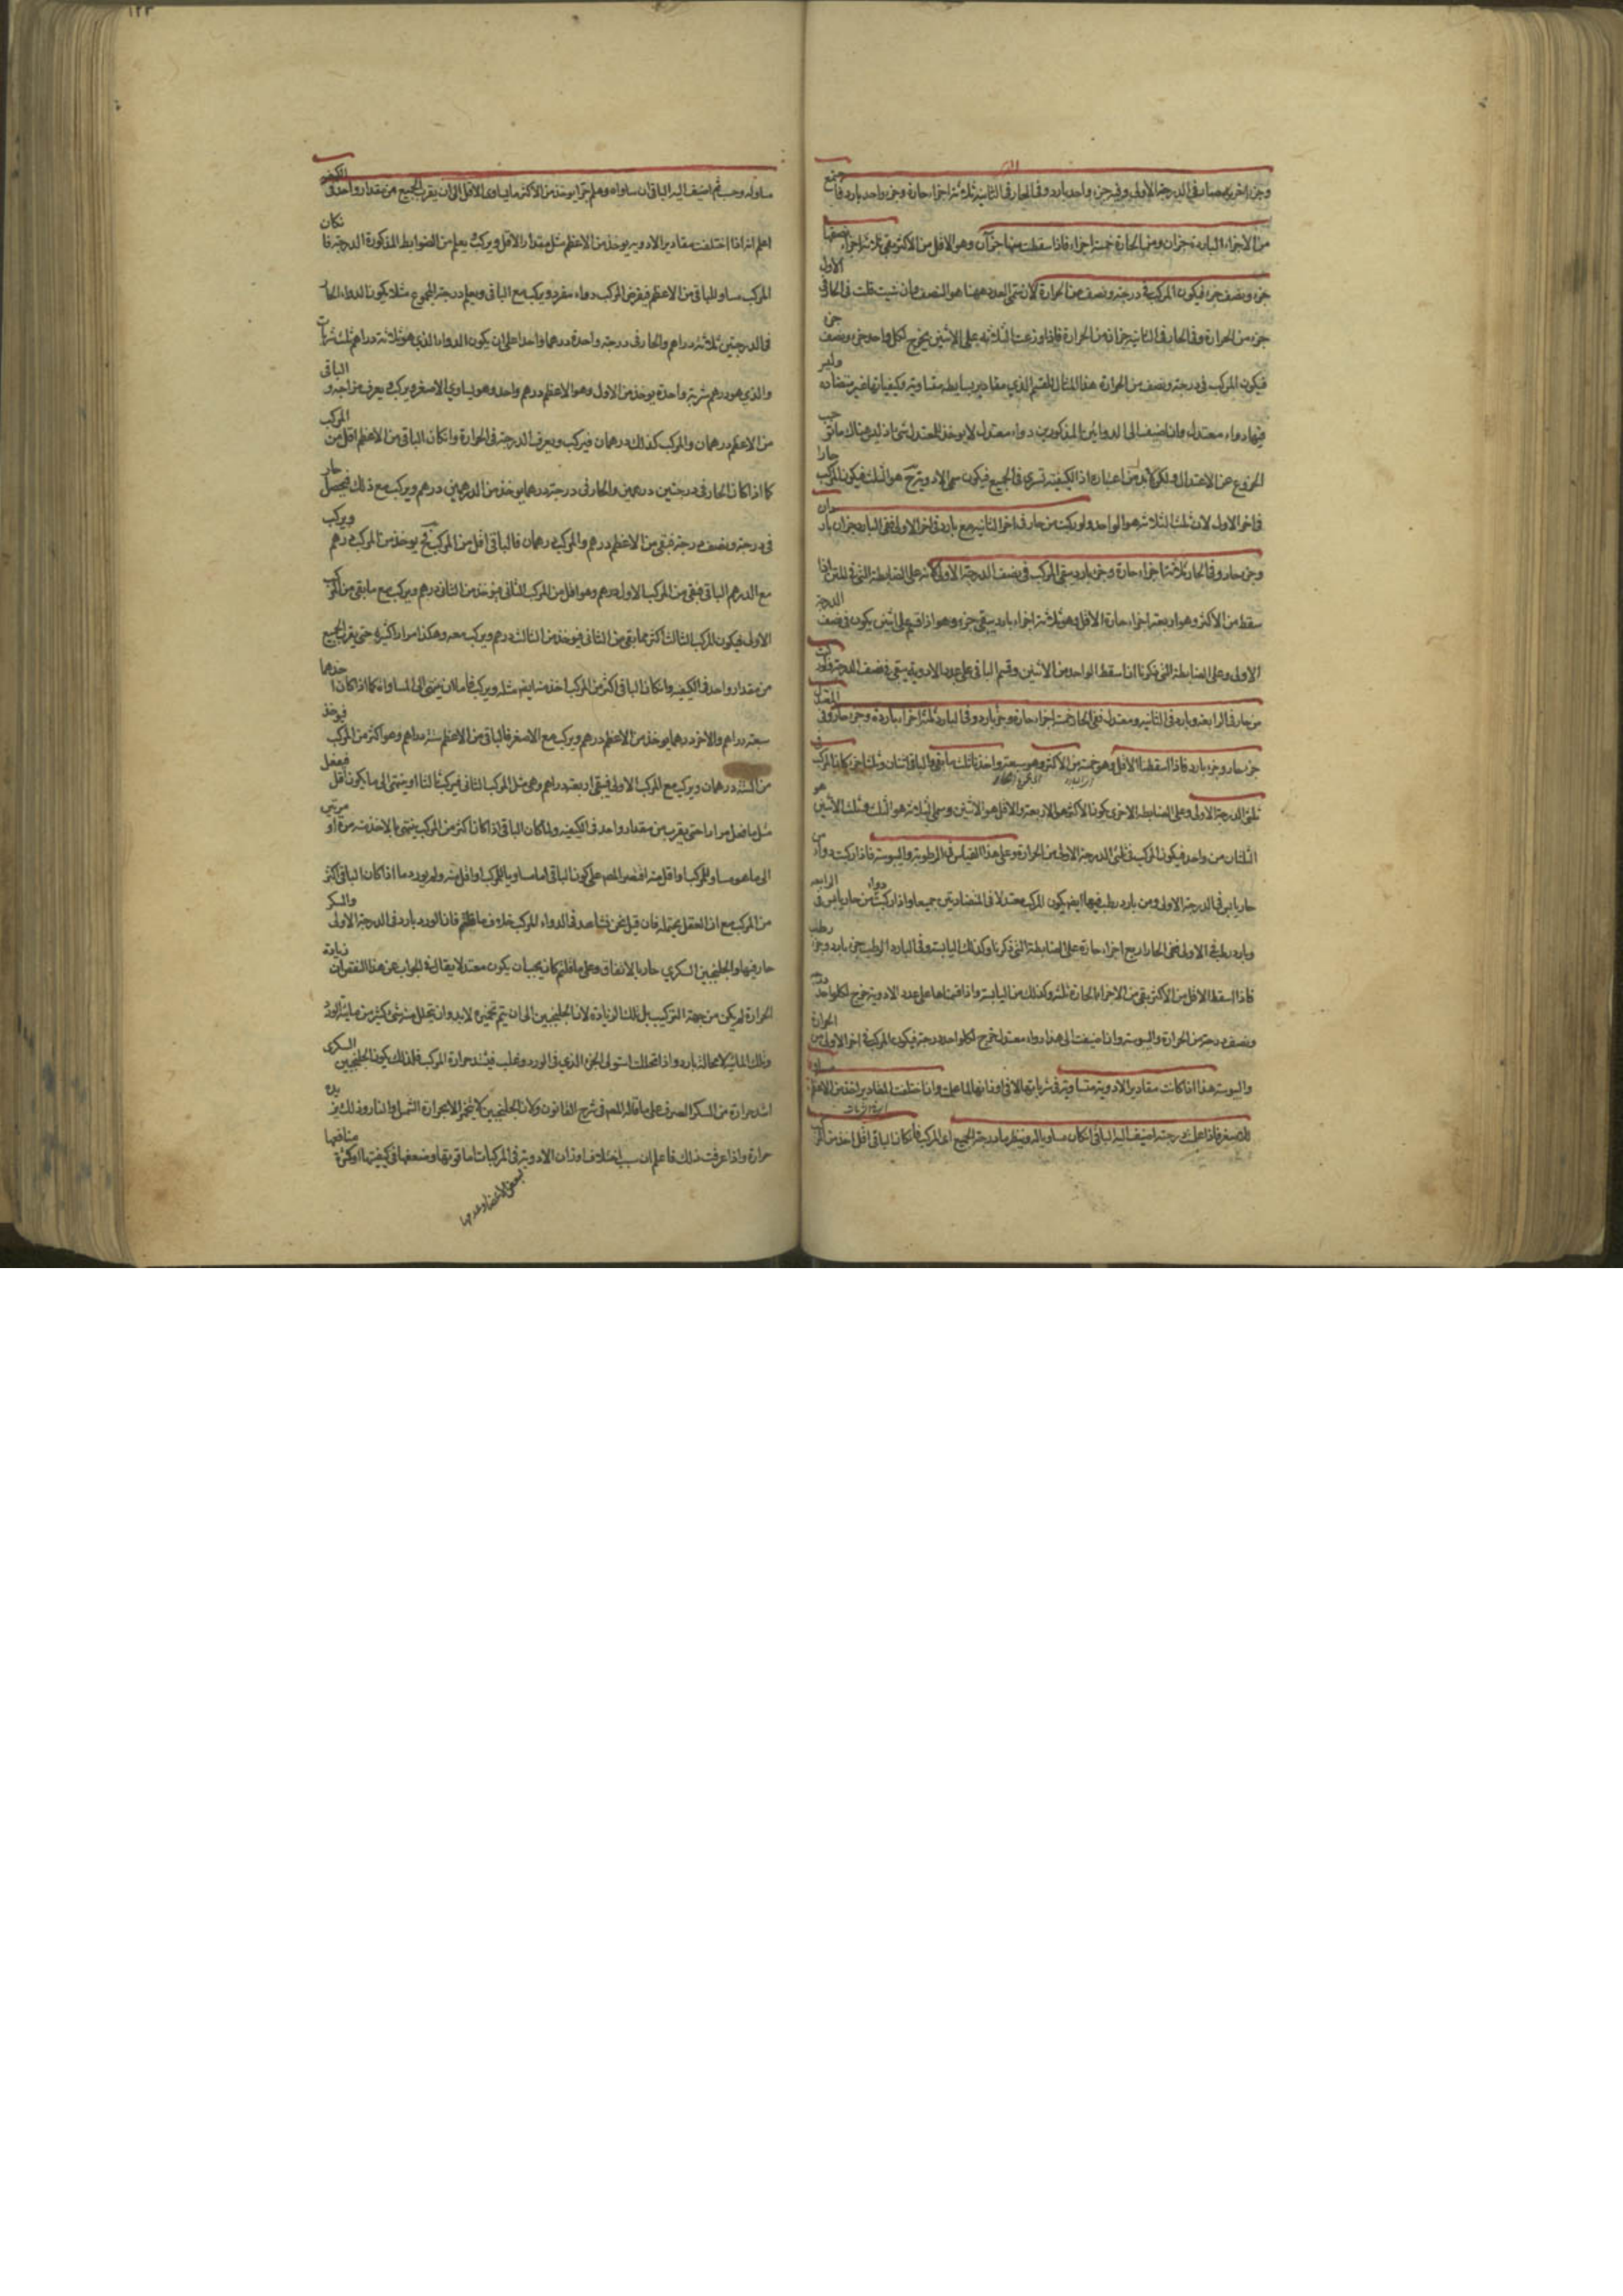 وجزء اخر به صار في الدرجة الاولى وفيه جزء واحد بارد وفي الحار في الثانية ثلاثة اجزاء حارة وجزء واحد بارد فاجتمع
من الاجزاء الباردة جزآن ومن الحارة خمسة اجزاء فاذا اسقطت منها جزآن وهو الاقل من الاكثر بقي ثلاثة اجزاء نصفها
جزء ونصف جزء فيكون المركب في درجة ونصف من الحرارة لان سمي العدد ههنا هو النصف وان شيت قلت في الحار في الاولى
جزء من الحرارة وفي الحار في الثانية جزآن من الحرارة فاذا وزعت الثلاثة على الاثنين يخرج لكل واحد جزء ونصف
فيكون المركب في درجة ونصف من الحرارة هذا المثال للقسم الذي مقادير بسايطه متساوية وكيفياتها غير متضادة وليس
فيها دواء معتدل وان اضيف الى الدوائين المذكورين دواء معتدل لا يوخذ للمعتدل شئ اذ ليس هناك ما
الخروج عن الاعتدال ولكن لابد من اعتباره اذ الكيفية تسري في الجميع فيكون سمي الادوية ح هو الثلث فيكون المركب حارا
في اخر الاولى لان ثلث الثلاثة هو الواحد ولو ركبت من حار في اخر الثانية مع بارد في اخر الاولى ففي البارد جزآن باردان
وجزء حار وفي الحار ثلاثة اجزاء حارة وجزء بارد يبقى المركب في نصف الدرجة الاولى لانه على الضابطة التي في المتن اذا
سقط من الاكثر وهو اربعة اجزاء حارة الاقل وهو ثلاثة اجزاء باردة يبقى جزء وهو اذا قسم على اثنين يكون في نصف الدرجة
الاولى وعلى الضابطة التي ذكرنا اذا سقط الواحد من الاثنين وقسم الباقي على عدد الادوية يبقى نصف الدرجة ولو ركبت
من حار في الرابعة وبارد في الثانية ومعتدل ففي الحار خمسة اجزاء حارة وجزء بارد وفي البارد ثلثة اجزاء باردة وجزء حار وفي المعتدل
جزء حار وجزء بارد فاذا اسقطنا الاقل وهو خمسة من الاكثر وهو سبعة واخذنا ثلث ما بقي والباقي اثنان وثلث اجزاء كان المركب في
ثلثي الدرجة الاولى وعلى الضابطة الاخرى يكون الاكثر هو الاربعة والاقل هو الاثنين وسمي الثلاثة هو الثلث وثلث الاثنين هو
الثلثان من واحد فيكون المركب في ثلثي الدرجة الاولى من الحرارة وعلى هذا القياس في الرطوبة واليبوسة فاذا ركبت دواء من
حار يابس في الدرجة الاولى ومن بارد رطب فيها ايضا يكون المركب معتدلا في المتضادتين جميعا واذا ركبت دواء من حار يابس في الرابعة
وبارد رطب في الاولى ففي الحار اربع اجزاء حارة على الضابطة التي ذكرنا وكذلك اليابسة وفي البارد الرطب جزء بارد وجزء رطب
فاذا اسقط الاقل من الاكثر بقي من الاجزاء الحارة ثلثة وكذلك من اليابسة واذا قسمناها على عدد الادوية يخرج لكل واحد درجة
ونصف درجة من الحرارة واليبوسة واذا اضيفت الى هذا دواء معتدل خرج لكل واحد درجة فيكون المركب في اخر الاولى من الحرارة
واليبوسة هذا اذا كانت مقادير الادوية متساوية في شرباتها لا في اوزانها لما علمت واذا اختلفت المقادير اخذ من الاعظم مساو
للاصغر فاذا علمت درجته اضيف اليه الباقي ان كان مساويا له وينظر ما درجة الجميع اي المركب فان كان الباقي اقل اخذ من المركب
مساو له وحسب ثم اضيف اليه الباقي ان ساواه وهلم جرا يوخذ من الاكثر ما يساوي الاقل الى ان يقرب الجميع من مقدار واحد في الكيفية
اعلم انه اذا اختلفت مقادير الادوية يوخذ من الاعظم مثل مقدار الاقل ويركب ويعلم من الضوابط المذكورة الدرجة فان كان
المركب مساو للباقي من الاعظم فيفرض المركب دواء مفرد ويركب مع الباقي ويعلم درجة المجموع مثلا يكون الدواء الحار
في الدرجتين ثلاثة دراهم والحار في درجة واحدة درهما واحدا على ان يكون الدواء الذي هو ثلاثة دراهم ثلث شربات
والذي هو درهم شربة واحدة يوخذ من الاول وهو الاعظم درهم واحد وهو يساوي الاصغر ويركب ويعرف مزاجه والباقي
من الاعظم درهمان والمركب كذلك درهمان فيركب ويعرف الدرجة في الحرارة وان كان الباقي من الاعظم اقل من المركب
كما اذا كان الحار في درجتين درهمين والحار في درجة درهما يوخذ من الدرهمين درهم ويركب مع ذلك فيحصل حار
في درجة ونصف درجة فبقي من الاعظم درهم والمركب درهمان فالباقي اقل من المركب ح يوخذ من المركب درهم ويركب
مع الدرهم الباقي فبقي من المركب الاول درهم وهو اقل من المركب الثاني فيوخذ من الثاني درهم ويركب مع ما بقي من المركب
الاول فيكون المركب الثالث اكثر مما بقي من الثاني فيوخذ من الثالث درهم ويركب معه وهكذا مرارا كثيرة حتى يقرب الجميع
من مقدار واحد في الكيفية وان كان الباقي اكثر من المركب اخذ منه ايضا مثله ويركب فاما ان ينتهي الى المساواة كما اذا كان احدهما
سبعة دراهم والاخر درهما يوخذ من الاعظم درهم ويركب مع الاصغر فالباقي من الاعظم ستة دراهم وهو اكثر من المركب فيوخذ
من الستة درهمان ويركب مع المركب الاول فيبقى اربعة دراهم وهي مثل المركب الثاني فيركب ثالثا او ينتهي الى ما يكون اقل فيفعل
مثل ما فعل مرارا حتى يقرب من مقدار واحد في الكيفية ولما كان الباقي اذا كان اكثر من المركب ينتهي بالاخذ منه مرة او مرتين
الى ما هو مساو للمركب او اقل منه اقتصر المص على كون الباقي اما مساويا للمركب او اقل منه ولم يورد ما اذا كان الباقي اكثر
من المركب مع ان العقل يحتمله فان قيل نحن نشاهد في الدواء المركب خلاف ما قلتم فان الورد بارد في الدرجة الاولى والسكر
حار فيها والجلنجبين السكري حار بالاتفاق وعلى ما قلتم كان يجب ان يكون معتدلا يقال في الجواب عن هذا النقض ان زيادة
الحرارة لم يكن من جهة التركيب بل تلك الزيادة لان الجلنجبين الى ان يتم تخميره لابد وان يتحلل منه شئ كثير من مائية الورد
وتلك المائية لا محالة باردة واذا تحللت استولى الجزء الذي في الورد وغلب فيشتد حرارة المركب فلذلك يكون الجلنجبين السكري
اشد حرارة من السكر الصرف على ما قاله المص في شرح القانون ولان الجلنجبين لا يتخمر الا بحرارة الشمس او النار وذلك يزيده
حرارة واذا عرفت ذلك فاعلم ان سبب اختلاف اوزان الادوية في المركبات اما قوتها وضعفها في كيفيتها او كثرة منافعها